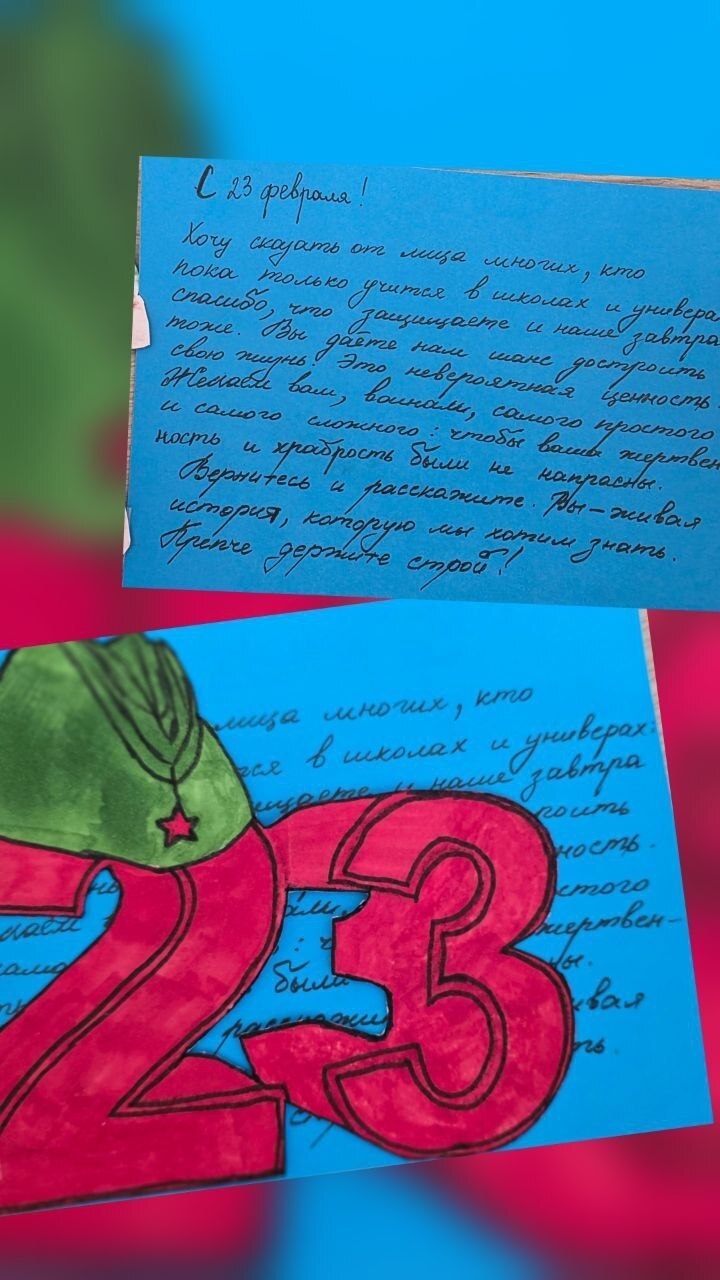 С 23 февраля!
Хочу сказать от лица многих, кто
пока только учится в школах и универах:
спасибо, что защищаете и наше завтра
тоже. Вы даёте нам шанс достроить
свою жизнь. Это невероятная ценность.
Желаем вам, воинам, самого простого
и самого сложного: чтобы ваша жертвен-
ность и храбрость были не напрасны.
Вернитесь и расскажите. Вы - живая
история, которую мы хотим знать.
Крепче держите строй!
лица многих, кто
тся в школах и универах:
щищаете и наше завтра
роить
ность.
стого
: ч жертвен-
были ны.
расскажи ивая
ть.
23